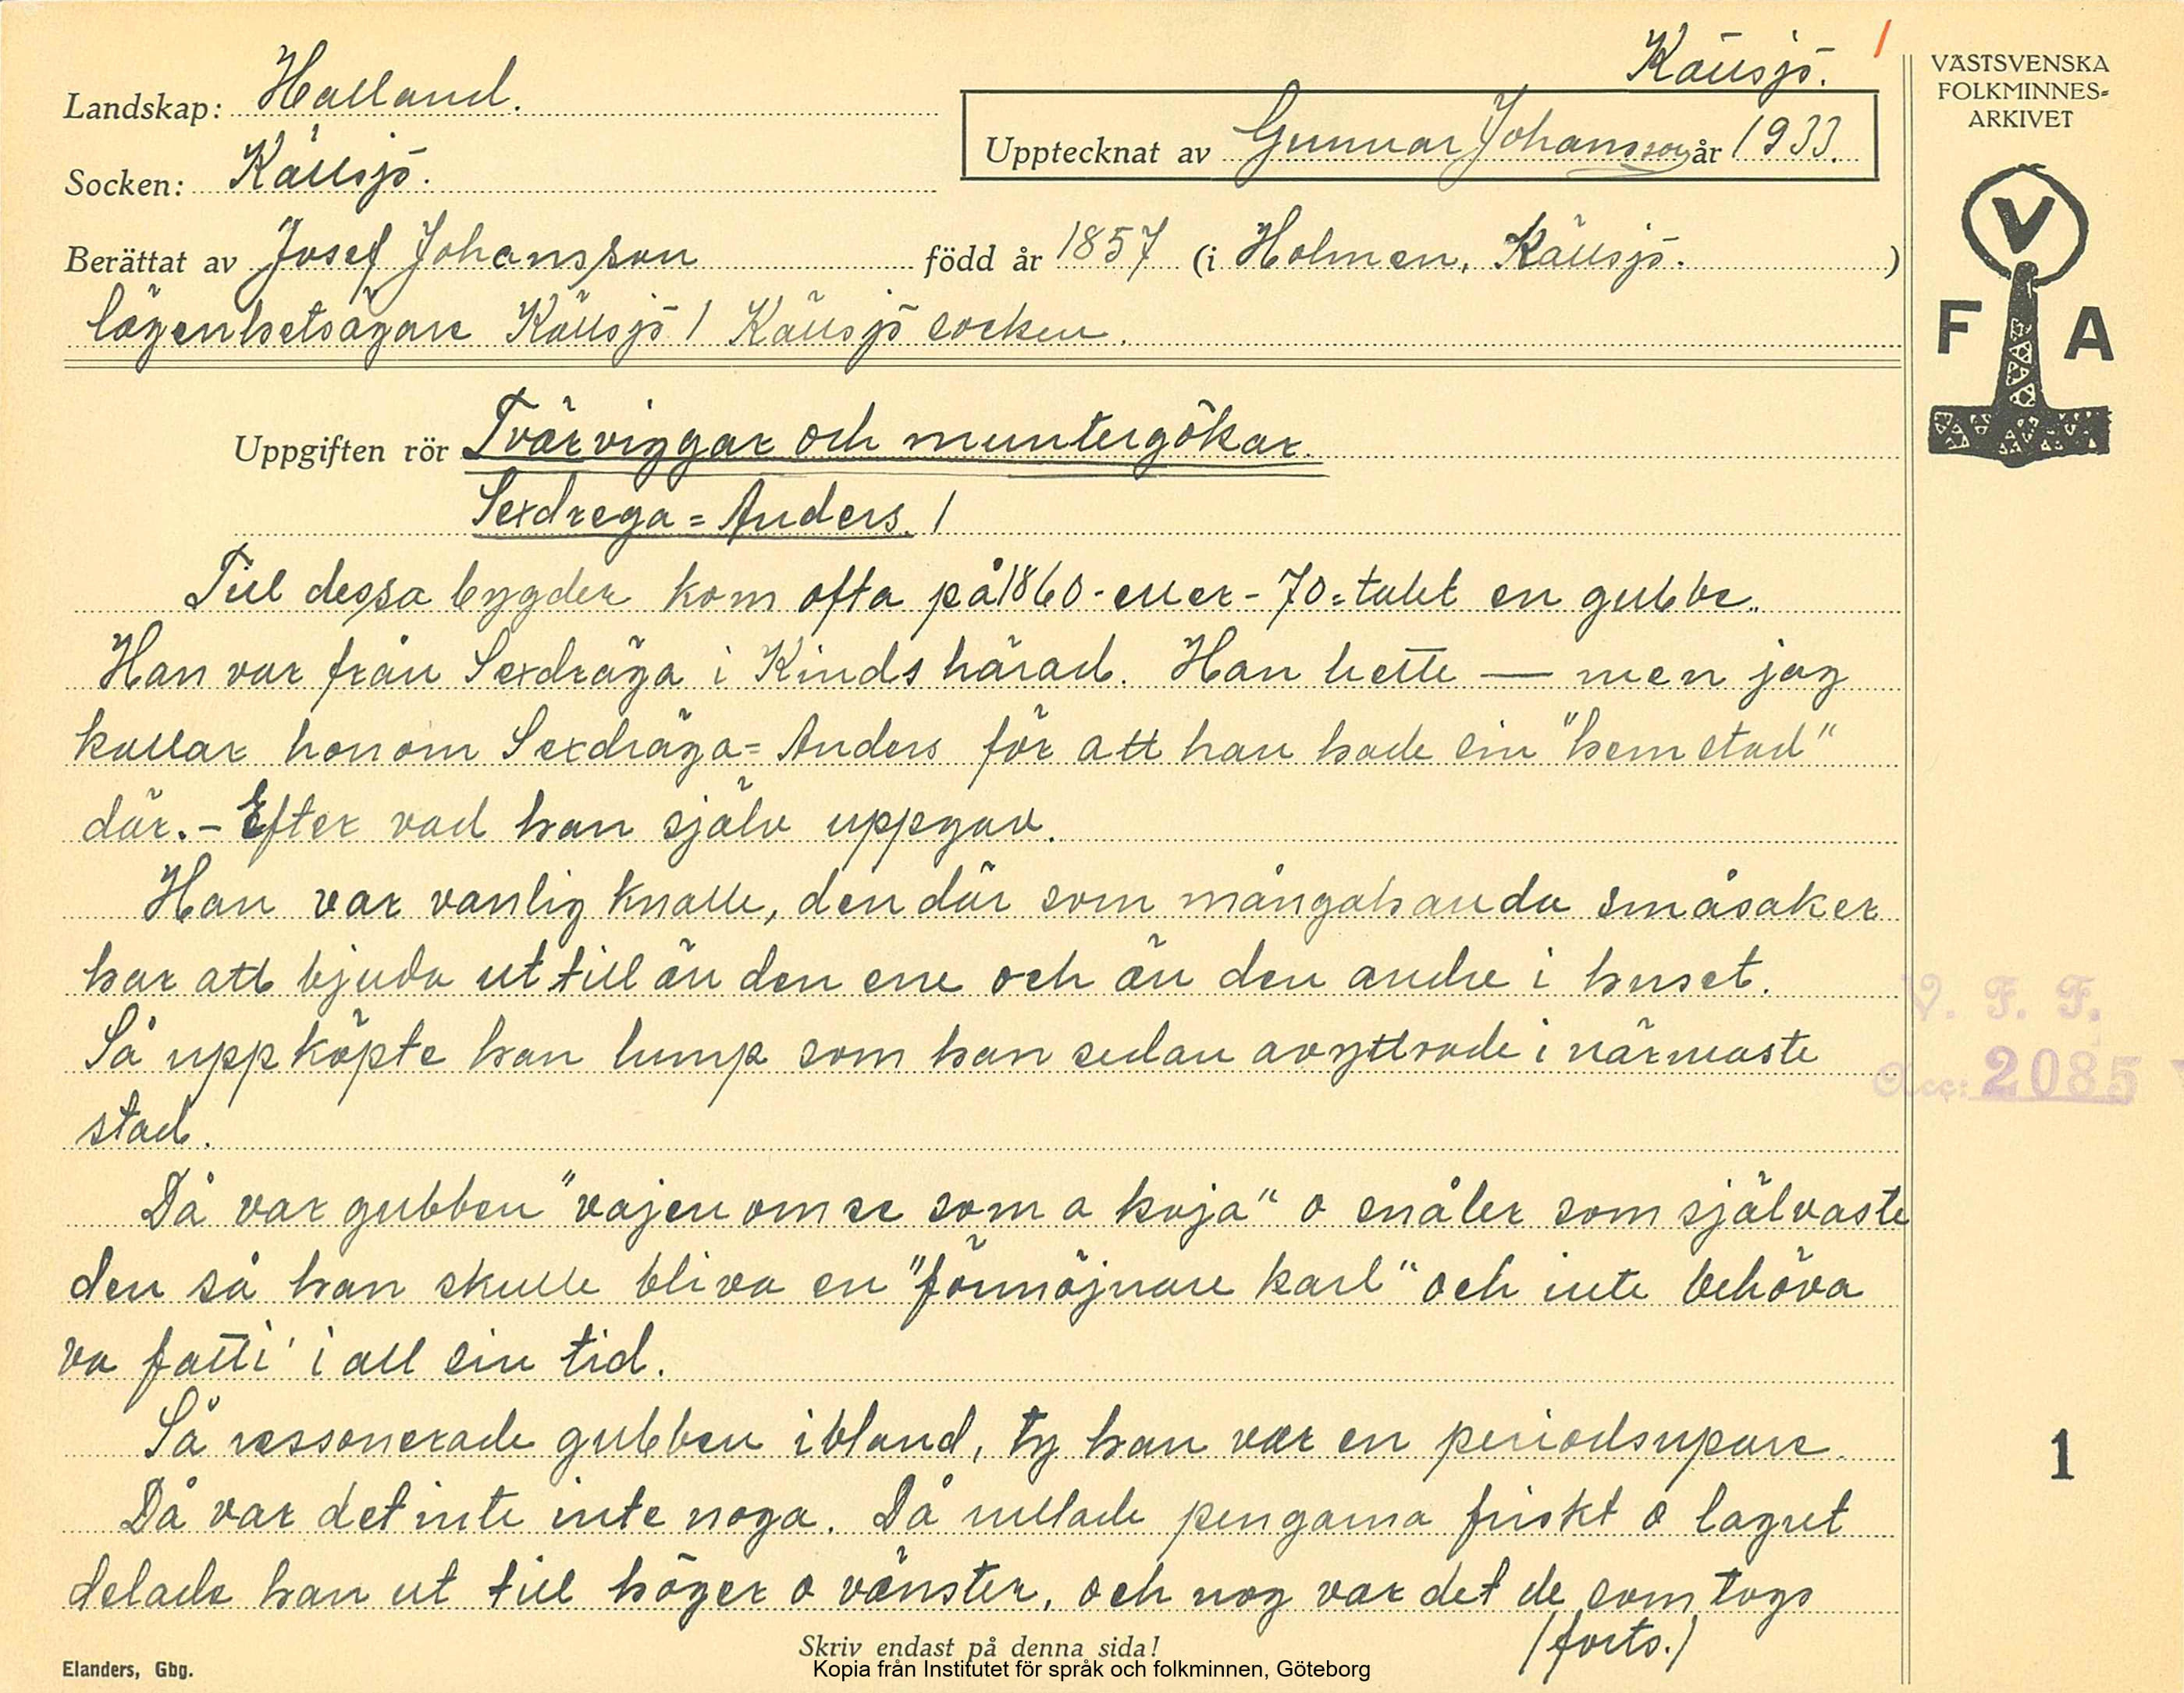 Källsjö. /
VÄSTSVENSKA
FOLKMINNES-
ARKIVET
Landskap: Halland.
Upptecknat av Gunnar Johansson år 1933.
Socken: Källsjö.
Berättat av Josef Johansson född år 1857 (i Holmen, Källsjö. )
lägenhetsägare Källsjö 1 Källsjö socken.
V
F A
Uppgiften rör Tvärviggar och muntergökar.
Sexdrega=Anders. 1
Till dessa bygder kom ofta på 1860-eller-70=talet en gubbe.
Han var från Sexdräga i Kinds härad. Han hette — men jag
kallar honom Sexdräga=Anders för att han hade sin "hemstad"
där.- Efter vad han själv uppgav.
Han var vanlig knalle, den där som mångahanda småsaker
har att bjuda ut till än den ene och än den andre i huset.
Så uppköpte han lump som han sedan avyttrade i närmaste
stad.
V. F. F.
Acc: 2085
Då var gubben "vajen om se som a koja" o snåler som självaste
den så han skulle bliva en "förmöjnare karl" och inte behöva
va fatti' i all sin tid.
Så ressonerade gubben ibland, ty han var en periodsupare.
Då var det inte inte noga. Då rullade pengarna friskt o lagret
delade han ut till höger o vänster, och nog var det de som togs
(forts.)
1
Skriv endast på denna sida!
Elanders, Gbg.
Kopia från Institutet för språk och folkminnen, Göteborg